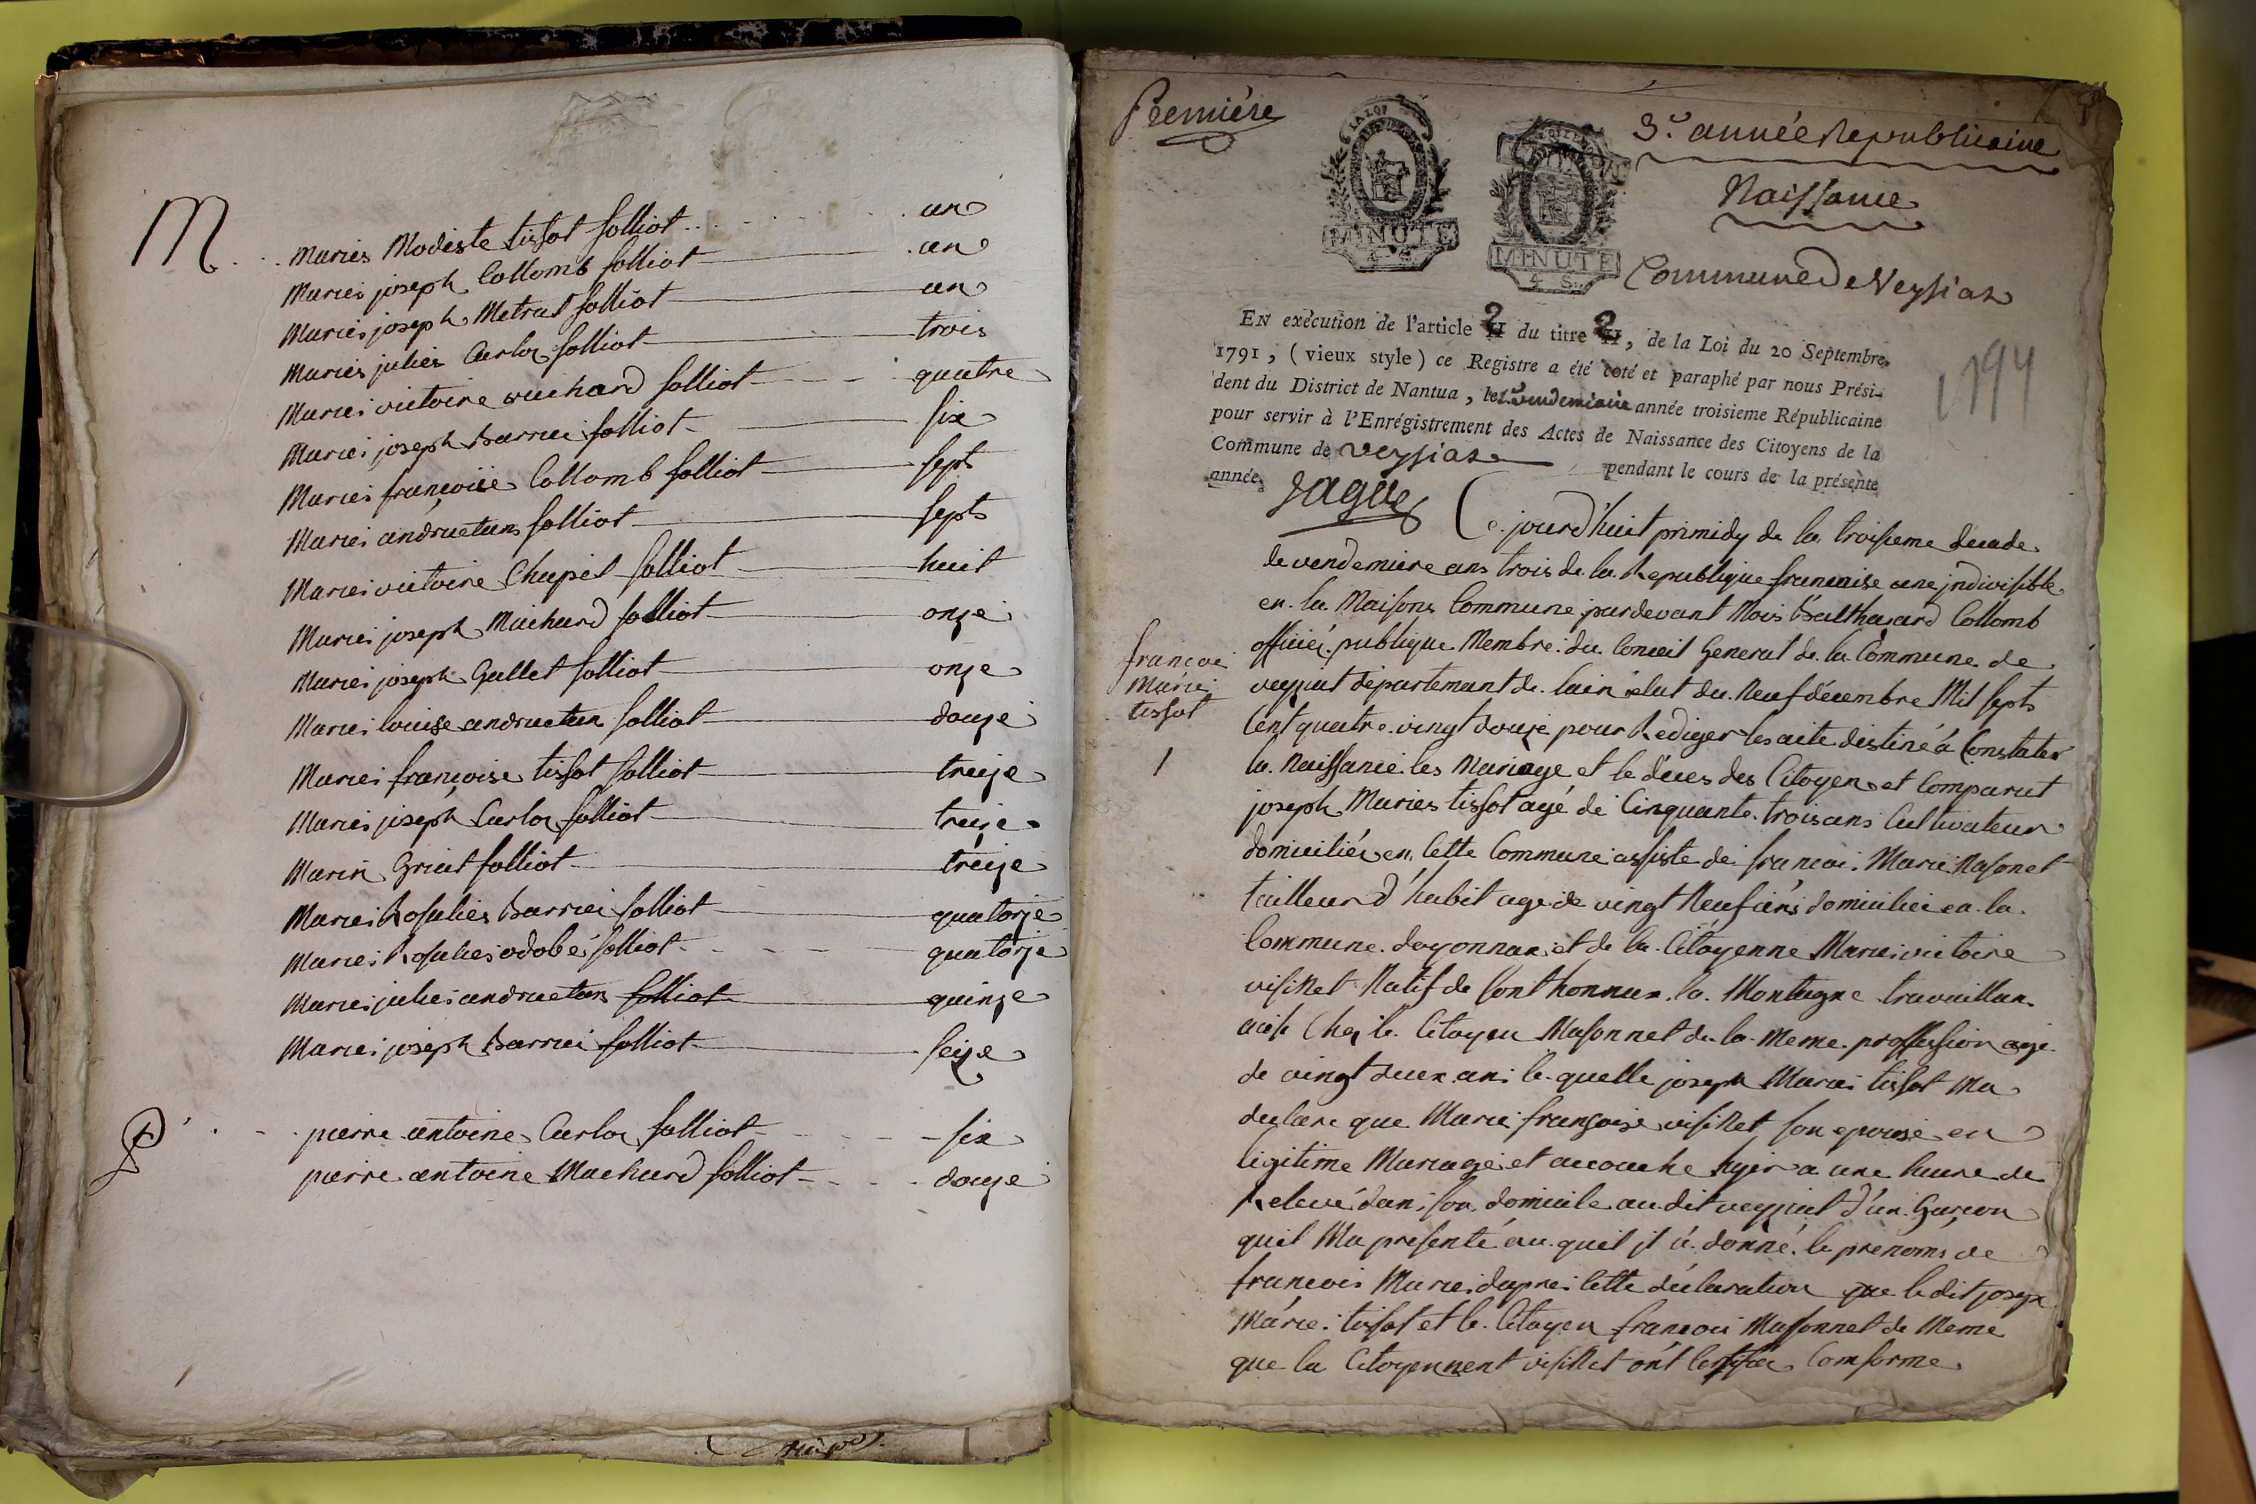 M
Maries Modeste tissot folliot un
Maries joseph Collomb folliot un
Maries joseph Metrat folliot un
Maries julies Carloz folliot trois
Maries victoire vuichard folliot quatre
Maries joseph barries folliot six
Maries françoise Collomb folliot septs
Maries andructans folliot septs
Maries victoire Chapel folliot huit
Maries joseph Machard folliot onze
Maries joseph Gallet folliot onze
Maries louise andructan folliot douze
Maries françoise tissot folliot treize
Maries joseph Carloz folliot treize
Marin Griat folliot treize
Maries Rosalies barries folliot quatorze
Maries Rosalies odobé folliot quatorze
Maries julies andructans folliot quinze
Maries joseph barries folliot seize
P
pierre antoine Carloz folliot six
pierre antoine Machard folliot douze
Première
3e année Republicaine
Naissance
Commune de Veyziaz
LA LOI
MINUTE
4 S.
MINUTE
4 S.
1794
EN exécution de l'article 2 du titre 2, de la Loi du 20 Septembre
1791, (vieux style) ce Registre a été coté et paraphé par nous Prési-
dent du District de Nantua, le vendemiaire année troisieme Républicaine
pour servir à l'Enrégistrement des Actes de Naissance des Citoyens de la
Commune de veysiaz pendant le cours de la présente
année.
Ce jourd'huit primidy de la troisieme decade
de vendemiere ans trois de la Republique francaise une jndivisible
en la Maison Commune pardevant Nous Balthazard Collomb
officié publique Membre du Conseil General de la Commune de
veyziat departemant de lain élut du Neuf décembre Mil septs
Cent quatre vingt douze pour Rediger les acte destiné a Constater
la Naissance les Mariage et le déces des Citoyens et Comparut
joseph Maries tissot agé de Cinquante trois ans Cultivateur
domiciliés en Cette Commune assiste de francoi Marie Masonet
tailleur d'habit age de vingt Neuf ans domicilie en la
Commune doyonnax et de la Citoyenne Marie victoire
visinet Natif de sonthonnax la Montagne travaillan
Chez le Citoyen Masonnet de la Meme proffession age
de vingt deux ans le quelle joseph Maries tissot Ma
declare que Marie françoise visinet son epouse en
légitime Mariage et accouche hyer a une heure de
Relevé dans son domicile au dit veyziat d'un Garcon
quil Ma presenté au quel jl à donné le prenoms de
francois Marie dapres Cette déclaration que le dit joseph
Márie tissot et le Citoyen francois Massonnet de Meme
que la Citoyennent visinet ont Certifier Comforme
francoi
Marie
tissot
1